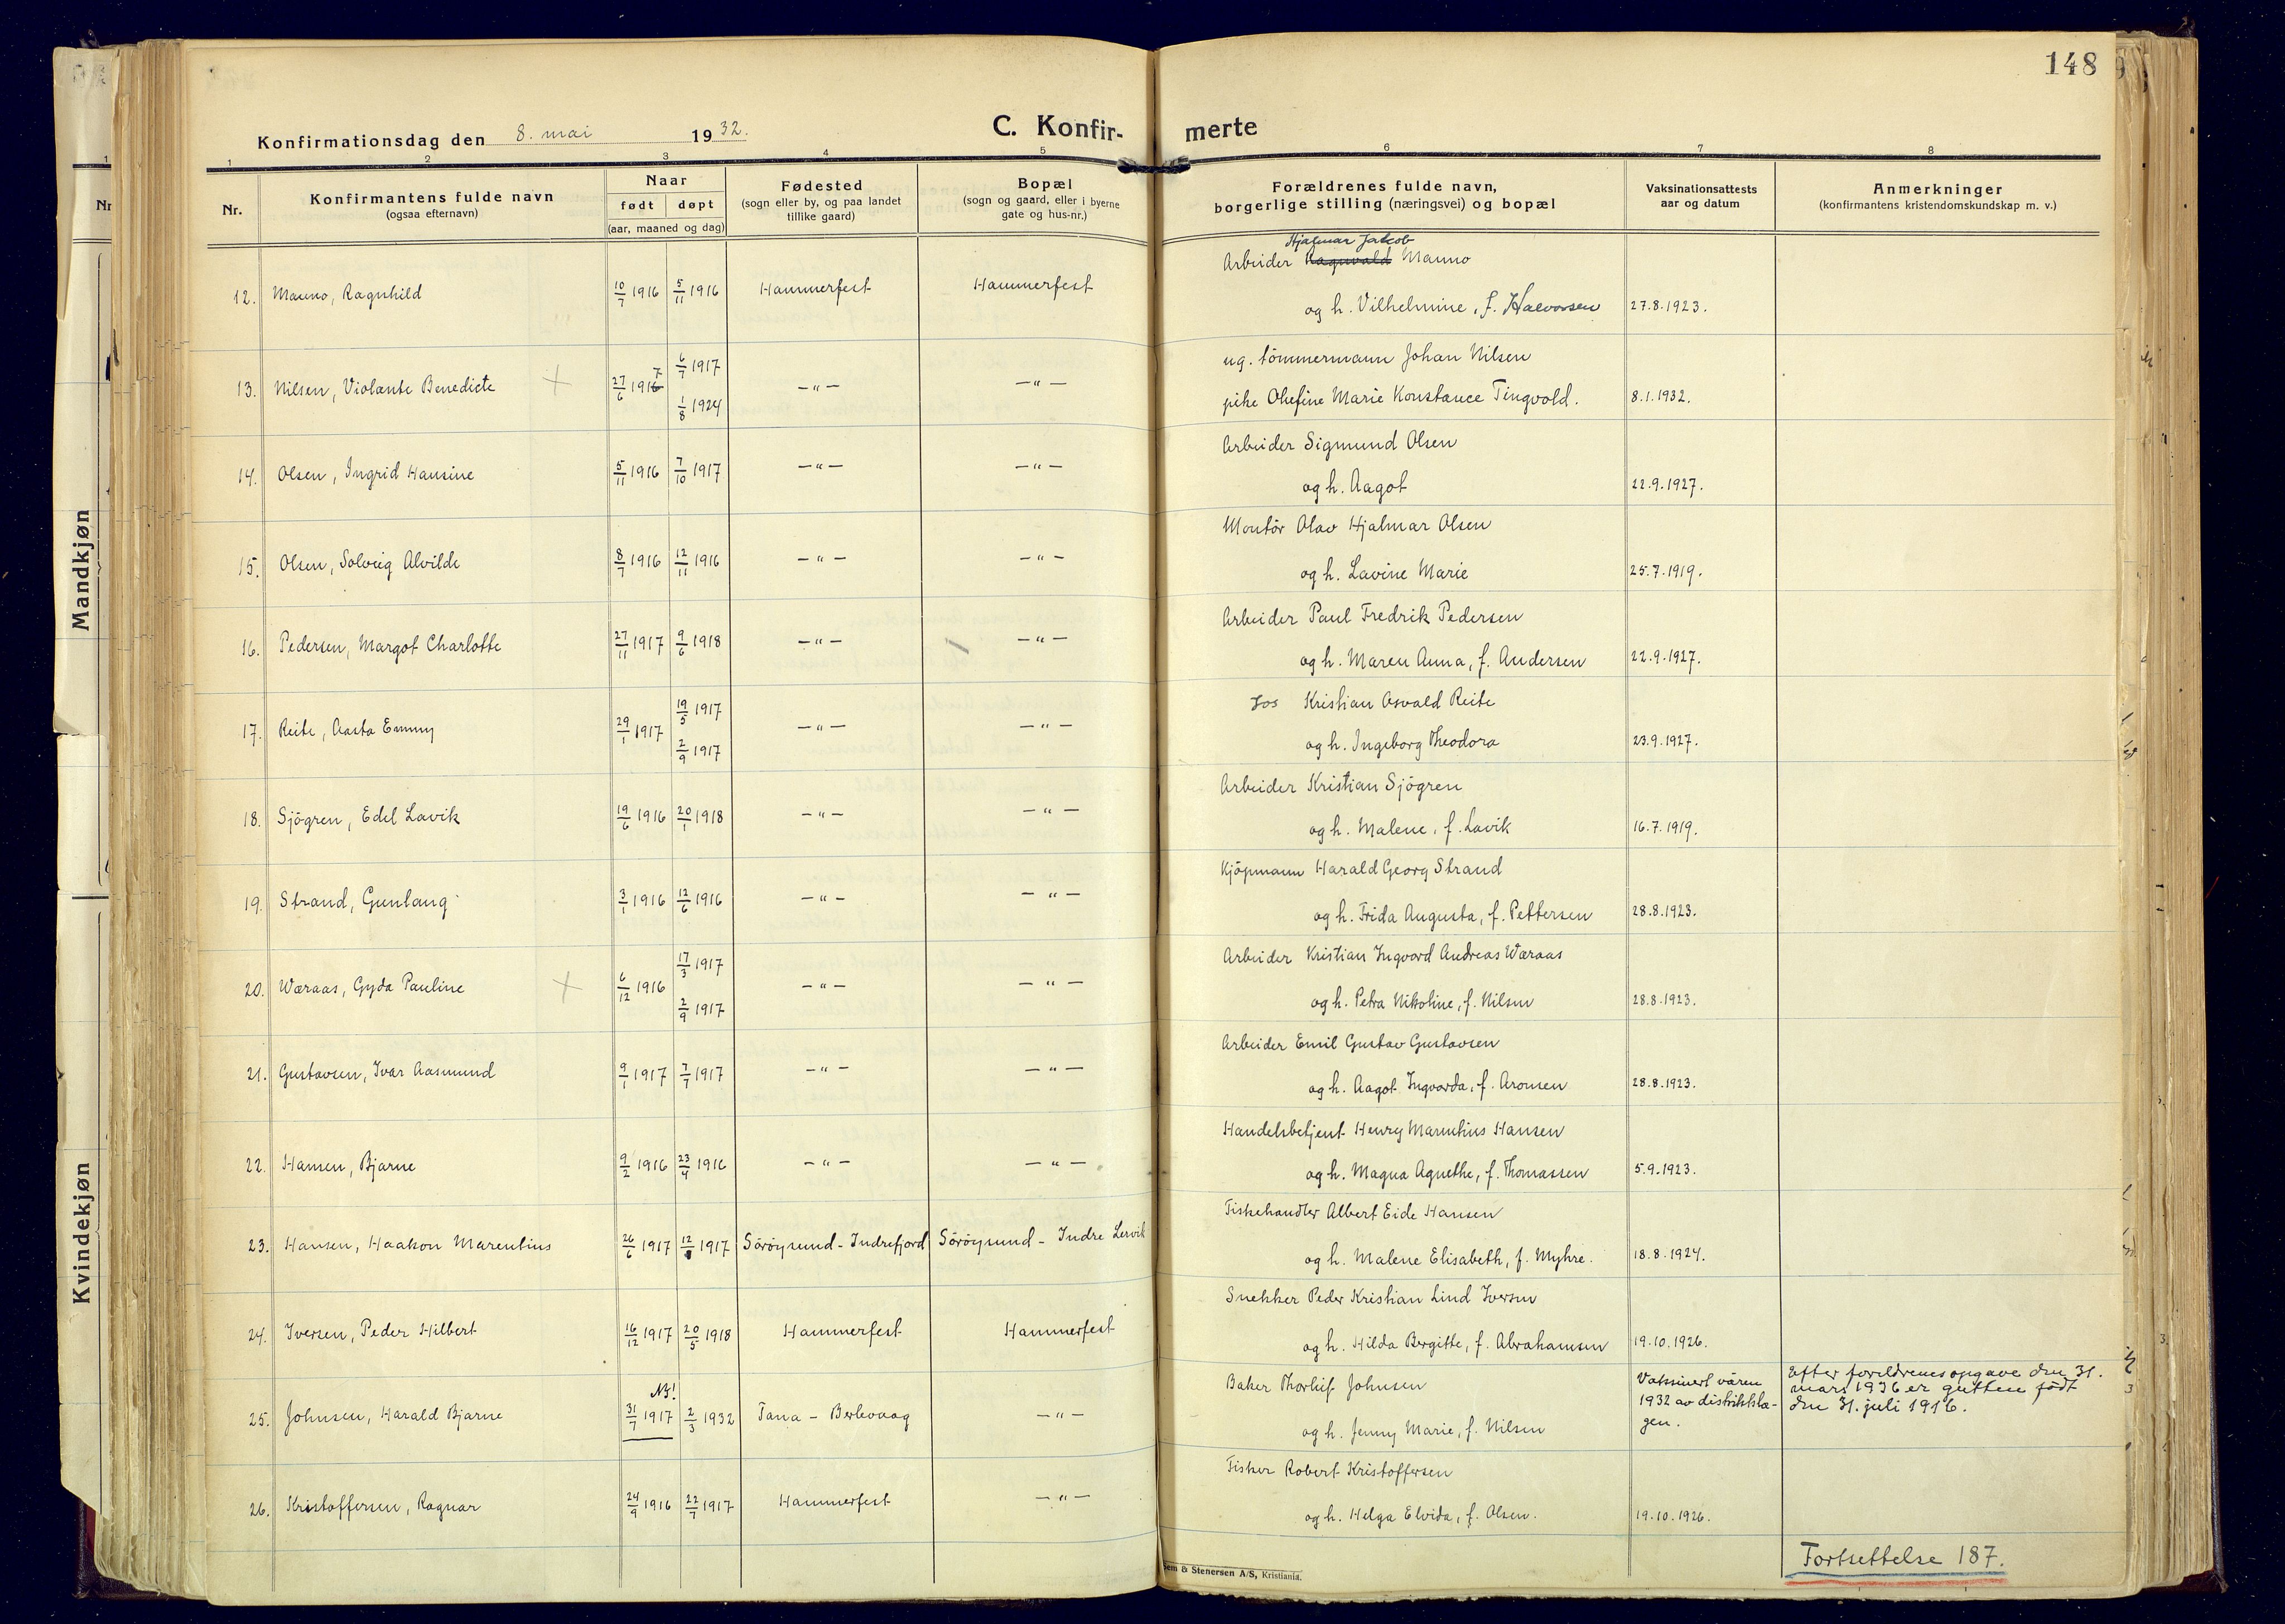 148
Konfirmationsdag den 8. mai 1932.
C. Konfir- merte
1 2 3 4 5 6 7 8
Nr.
Konfirmantens fulde navn
(ogsaa efternavn)
Naar
født døpt
(aar, maaned og dag)
Fødested
(sogn eller by, og paa landet
tillike gaard)
Bopæl
(sogn og gaard, eller i byerne
gate og hus-nr.)
Forældrenes fulde navn,
borgerlige stilling (næringsvei) og bopæl
Vaksinationsattests
aar og datum
Anmerkninger
(konfirmantens kristendomskundskap m. v.)
Hjalmar Jakob
Arbeider Ragnvald Manno
12. Manno, Ragnhild 10/7 1916 5/11 1916 Hammerfest Hammerfest
og h. Vilhelmine, f. Halvorsen 27.8.1923.
ug. tömmermann Johan Nilsen
13. Nilsen, Violante Benedicte 27/6 1916 7 6/7 1917 1/8 1924 -"- -"-
pike Olufine Marie Konstance Tingvold. 8.1.1932.
Arbeider Sigmund Olsen
14. Olsen, Ingrid Hansine 5/11 1916 7/10 1917 -"- -"-
og h. Aagot 22.9.1927.
Montör Olav Hjalmar Olsen
15. Olsen, Solveig Alvilde 8/7 1916 12/11 1916 -"- -"-
og h. Lavine Marie 25.7.1919.
Arbeider Paul Fredrik Pedersen
16. Pedersen, Margot Charlotte 27/11 1917 9/6 1918 -"- -"-
og h. Maren Anna, f. Andersen 22.9.1927.
Kristian Osvald Reite
17. Reite, Aasta Emmy 29/1 1917 19/5 1917 2/9 1917 -"- -"-
og h. Ingeborg Theodora 23.9.1927.
Arbeider Kristian Sjögren
18. Sjögren, Edel Lavik 19/6 1916 20/1 1918 -"- -"-
og h. Malene, f. Lavik 16.7.1919.
Kjöpmann Harald Georg Strand
19. Strand, Gunlaug 3/1 1916 12/6 1916 -"- -"-
og h. Frida Augusta, f. Pettersen 28.8.1923.
Arbeider Kristian Ingvord Andreas Wæraas
20. Wæraas, Gyda Pauline 6/12 1916 17/3 1917 2/9 1917 -"- -"-
og h. Petra Nikoline, f. Nilsen 28.8.1923.
Arbeider Emil Gustav Gustavsen
21. Gustavsen, Ivar Aasmund 9/1 1917 7/7 1917 -"- -"-
og h. Aagot Ingvorda, f. Aronsen 28.8.1923.
Handelsbetjent Henry Marentius Hansen
22. Hansen, Bjarne 9/2 1916 23/4 1916 -"- -"-
og h. Magna Agnethe, f. Thomassen 5.9.1923.
Fiskehandler Albert Eide Hansen
23. Hansen, Haakon Marentius 26/6 1917 12/8 1917 Söröysund - Indrefjord Söröysund - Indre Lervik
og h. Malene Elisabeth, f. Myhre. 18.8.1924.
Snekker Peder Kristian Lind Iversen
24. Iversen, Peder Hilbert 16/12 1917 20/5 1918 Hammerfest Hammerfest
og h. Hilda Bergitte, f. Abrahamsen 19.10.1926.
Baker Thorleif Johnsen
25. Johnsen, Harald Bjarne NB! 31/7 1917 2/3 1932 Tana - Berlevaag -"-
og h. Jenny Marie, f. Nilsen
Vaksinert våren
1932 av distriktslæ-
gen.
Efter foreldrenes opgave den 31.
mars 1936 er gutten født
den 31. juli 1916.
Fisker Robert Kristoffersen
26. Kristoffersen, Ragnar 24/9 1916 22/7 1917 Hammerfest -"-
og h. Helga Elvida, f. Olsen. 19.10.1926.
Fortsettelse 187.
Sem & Stenersen A/S, Kristiania.
Mandkjøn
Kvindekjøn
Nr